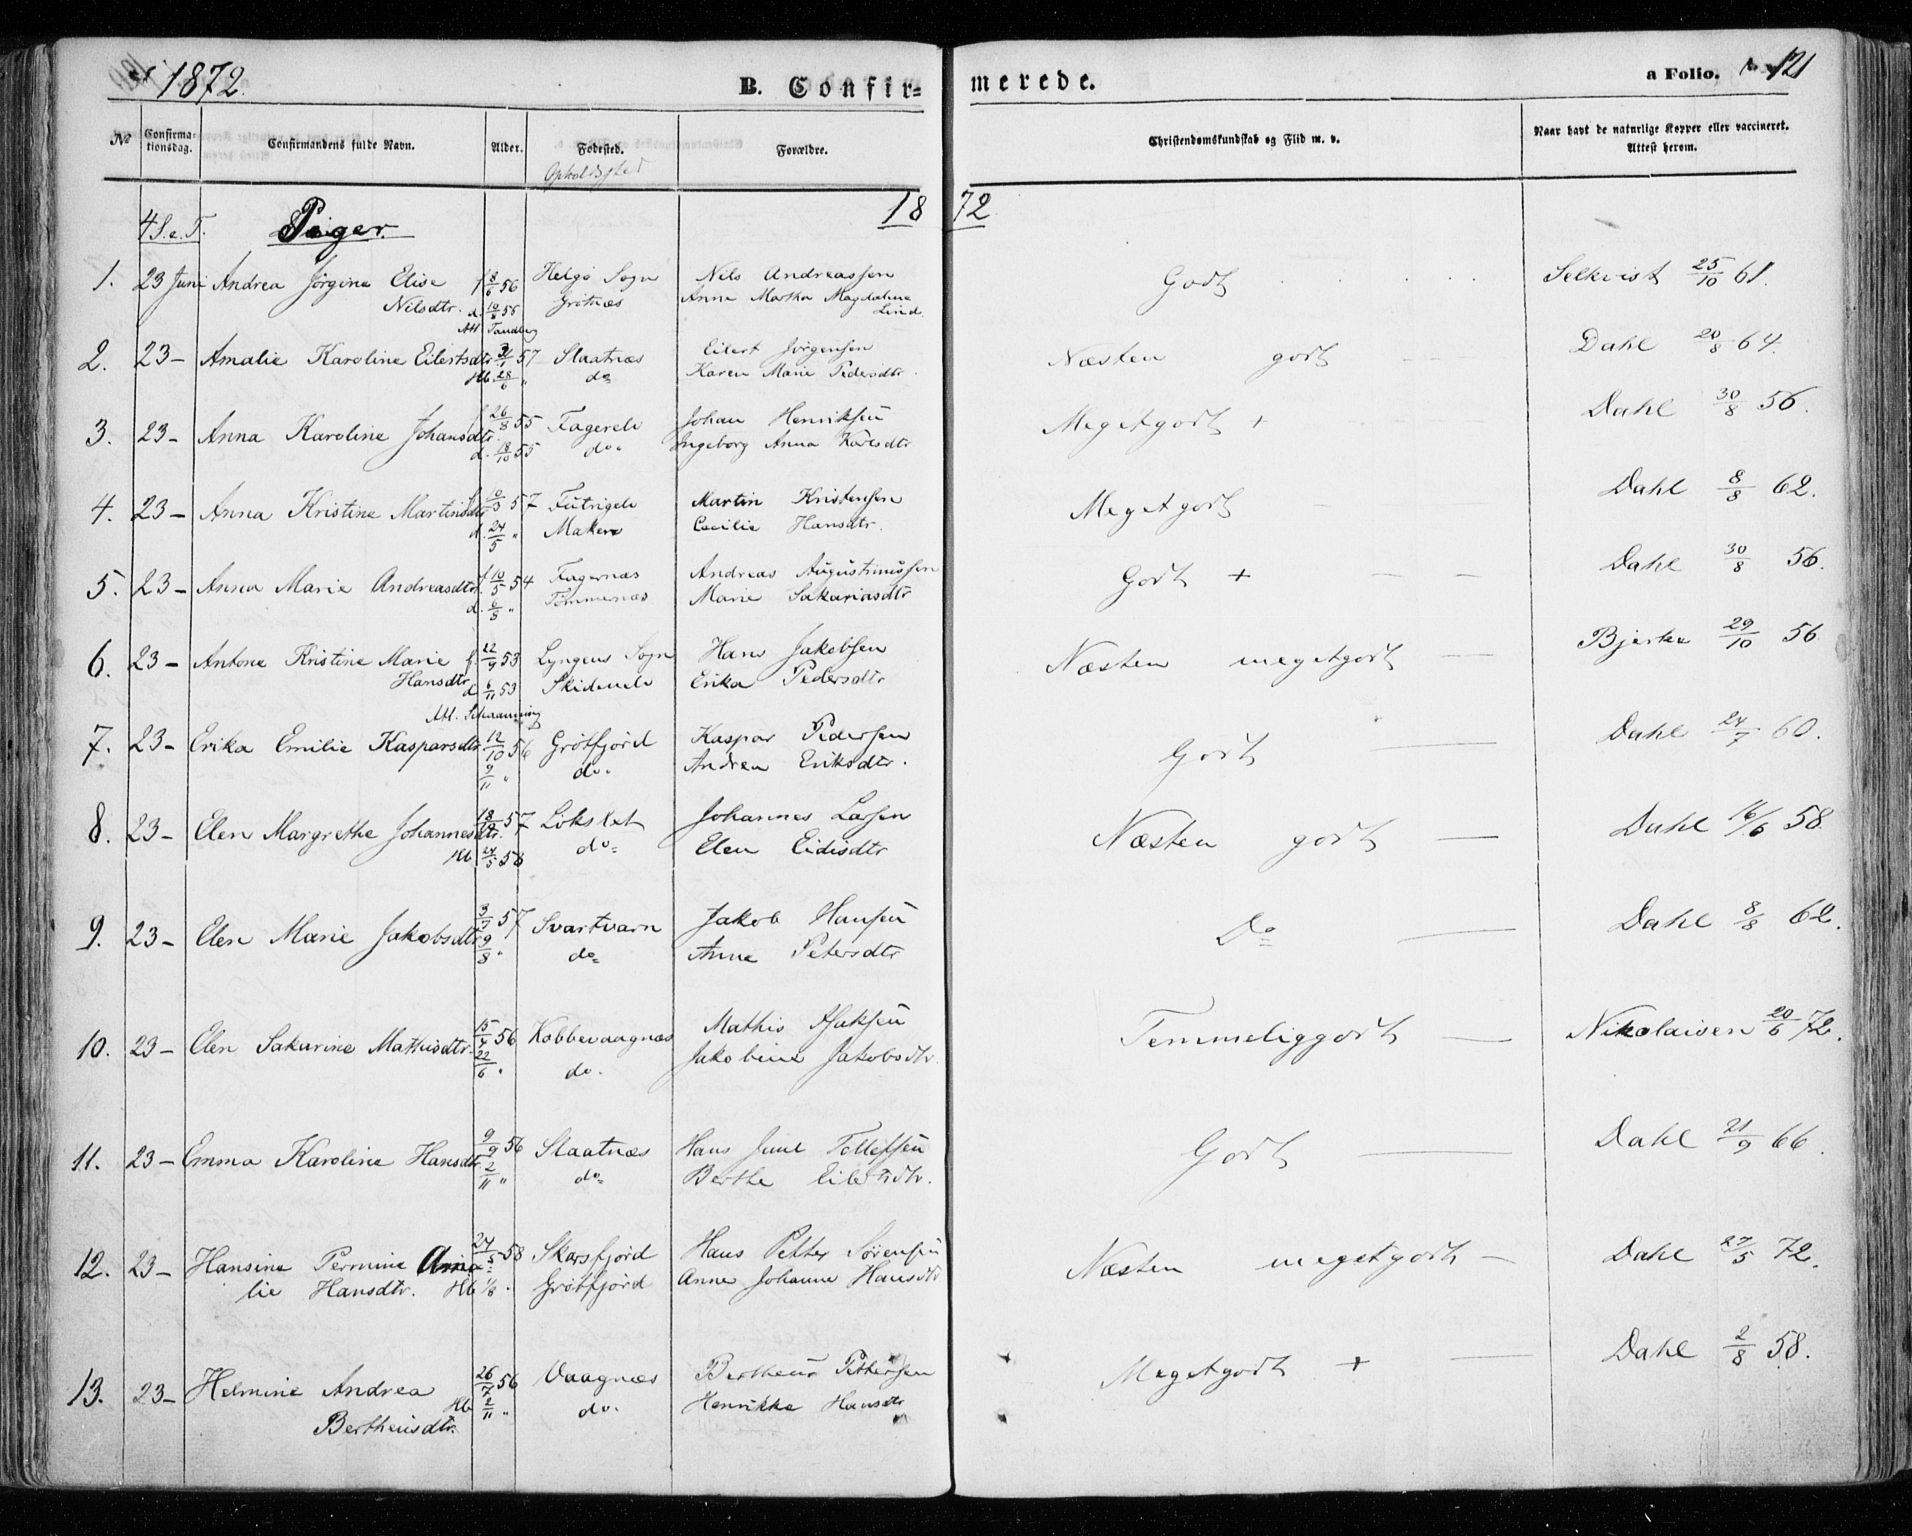 1872.
B. Confir=
merede.
a Folio. 121
No
Confirma-
tionsdag.
Confirmandens fulde Navn.
Alder.
Fødested.
Forældre.
Christendomskundskab og Flid m. v.
Naar havt de naturlige Kopper eller vaccineret.
Attest herom.
Opholdssted
18 72
4 S. e. T. Piger.
1. 23 Juni Andrea Jørgine Elise f 8/6 56 Helgø Sogn Nils Andreassen Godt Selkvist 25/10 61.
Nilsdtr. d. 10/8 56 Grøtnæs Anne Martha Magdalene
Lind.
Att. Tandberg
2. 23 - Amalie Karoline Eilertsdtr. 57 Slaatnæs Eilert Jørgensen Næsten godt Dahl 20/8 64.
Hb. 28/6 " do Karen Marie Pedersdtr.
3. 23 - Anna Karoline Johansdtr. f. 26/8 55 Fagerele Johan Henriksen Megetgodt + Dahl 30/8 56.
d. 18/10 55 do. Ingeborg Anna Karlsdtr
4. 23 - Anna Kristine Martinsdtr 10/3 57 Futrigele Martin Kristensen Megetgodt - Dahl 8/8 62.
d. 24/5 " Cecilie Hansdtr.
5. 23 - Anna Marie Andreasdtr. f. 10/5 54 Fagernæs Andreas Augustinussen Godt + Dahl 30/8 56.
d. 6/8 " Tømmernæs Marie Sakariasdtr
6. 23 - Antone Kristine Marie f. 22/9 53 Lyngens Sogn Hans Jakobsen Næsten megetgodt - Bjerke 29/10 56
Hansdtr. d. 6/11 53 Skidenele Erika Pedersdtr
Att. Schaanning
7. 23 - Erika Emilie Kasparsdtr. 12/10 56 Grøtfjord Kaspar Pedersen Godt - Dahl 24/7 60.
9/11 " do. Andrea Eriksdtr.
8. 23 - Elen Margrethe Johannesdtr. 57 Løksket Johannes Larsen Næsten godt - Dahl 16/6 58.
Hb 24/5 58 do= Elen Eidisdtr
9. 23 - Elen Marie Jakobsdtr 57 Svartvarn Jakob Hansen Do - Dahl 8/8 62.
9/8 " do= Anne Petersdtr
10. 23 - Elen Sakarine Mathisdtr. 56 Kobbevaagnæs Mathis Isaksen Temmeliggodt - Nikolaisen 20/6 72.
22/6 " do. Jakobine Jakobsdtr.
11. 23 - Emma Karoline Hansdtr 9/9 56 Slaatnæs Hans Juul Tollefsen Godt - Dahl 21/9 66.
2/11 " do= Berthe Eilertsdtr.
12. 23 - Hansine Permine Ama 24/5 58 Skarsfjord Hans Petter Sørensen Næsten megetgodt - Dahl 27/5 72.
lie Hansdtr. Hb 1/8. Grøtfjord Anne Johanne Hansdtr
13. 23 - Helmine Andrea 26/7 56 Vaagnæs Bertheus Pettersen Megetgodt + - Dahl 2/8 58.
Bertheusdtr. Hb 2/11 " do. Henrikke Hansdtr